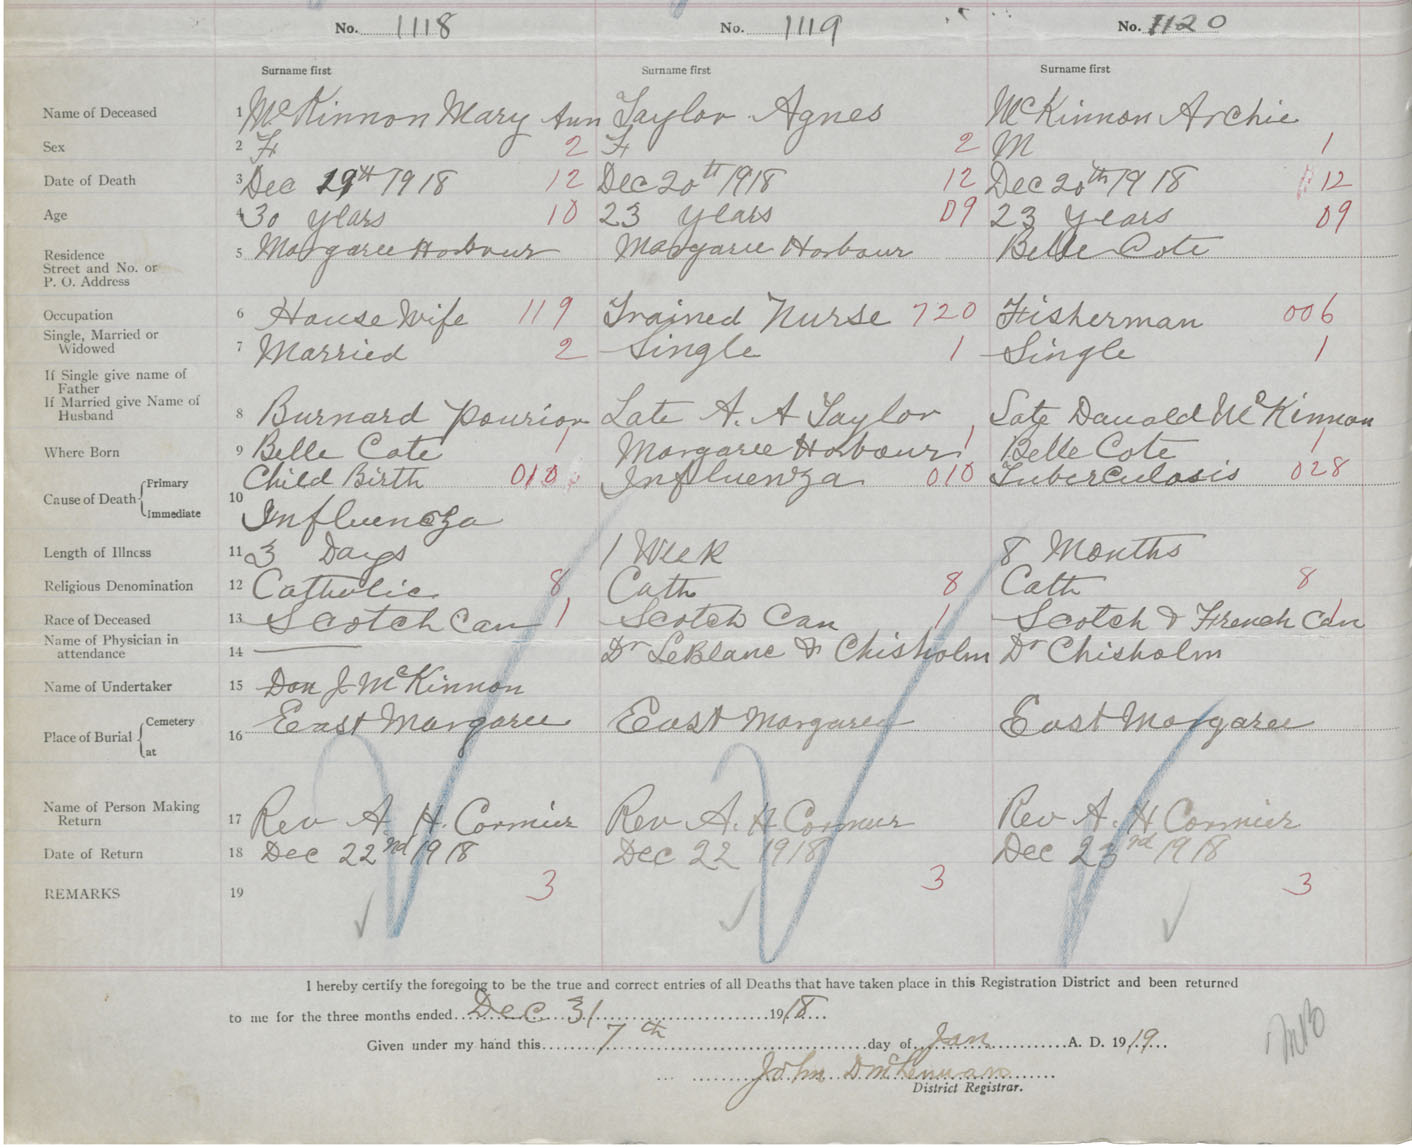 No. 1118 No. 1119 No. 1120
Surname first Surname first Surname first
Name of Deceased 1 McKinnon Mary Ann Taylor Agnes McKinnon Archie
Sex 2 F 2 F 2 M 1
Date of Death 3 Dec 19th 1918 12 Dec 20th 1918 12 Dec 20th 1918 12
Age 4 30 years 10 23 years 09 23 years 09
Residence
Street and No. or
P. O. Address
5 Margaree Harbour Margaree Harbour Belle Cote
Occupation 6 House Wife 119 Trained Nurse 720 Fisherman 006
Single, Married or
Widowed
7 Married 2 Single 1 Single 1
If Single give name of
Father
If Married give Name of
Husband
8 Burnard Pourior Late A. A Taylor Late Danald McKinnon
Where Born 9 Belle Cote 1 Margaree Harbour 1 Belle Cote 1
Cause of Death Primary Child Birth 010 Influenza 010 Tuberculosis 028
Immediate 10 Influenza
Length of Illness 11 3 Days 1 Week 8 Months
Religious Denomination 12 Catholic 8 Cath 8 Cath 8
Race of Deceased 13 Scotch Can 1 Scotch Can 1 Scotch & French Can 1
Name of Physician in
attendance
14 Dr LeBlanc & Chisholm Dr Chisholm
Name of Undertaker 15 Dan J McKinnon
Place of Burial Cemetery
at
16 East Margaree East Margaree East Margaree
Name of Person Making
Return
17 Rev A. H. Cormier Rev A. H Cormier Rev A. H Cormier
Date of Return 18 Dec 22nd 1918 Dec 22 1918 Dec 23rd 1918
REMARKS 19 3 3 3
I hereby certify the foregoing to be the true and correct entries of all Deaths that have taken place in this Registration District and been returned
to me for the three months ended Dec. 31 1918
Given under my hand this 7th day of Jan A. D. 1919
John D McLennan
District Registrar.